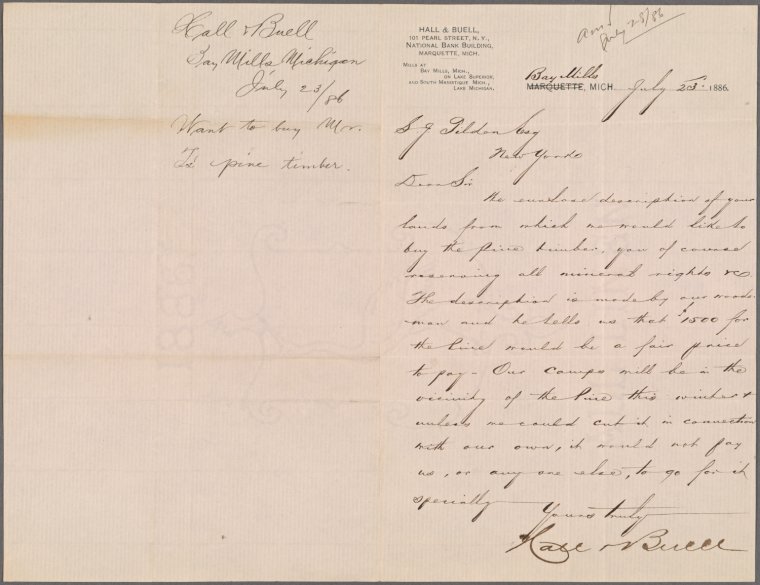 Hall & Buell
Bay Mills Michigan
July 23/86
Want to buy Mr.
T's pine timber.
HALL & BUELL,
101 PEARL STREET, N. Y.,
NATIONAL BANK BUILDING,
MARQUETTE, MICH.
MILLS AT
BAY MILLS, MICH.,
ON LAKE SUPERIOR,
AND SOUTH MANISTIQUE, MICH.,
LAKE MICHIGAN.
July 28/86
Bay Mills
MARQUETTE, MICH. July 23d 1886.
S J Tilden Esq
New York
Dear Sir
We enclose description of your
lands from which we would like to
buy the Pine timber, you of course
reserving all mineral rights &c.
The description is made by our woods-
man and he tells us that $1500 for
the Pine would be a fair price
to pay - Our camps will be in the
vicinity of the Pine this winter &
unless we could cut it in connection
with our own, it would not pay
us, or any one else, to go for it
specially
Yours truly
Hall & Buell